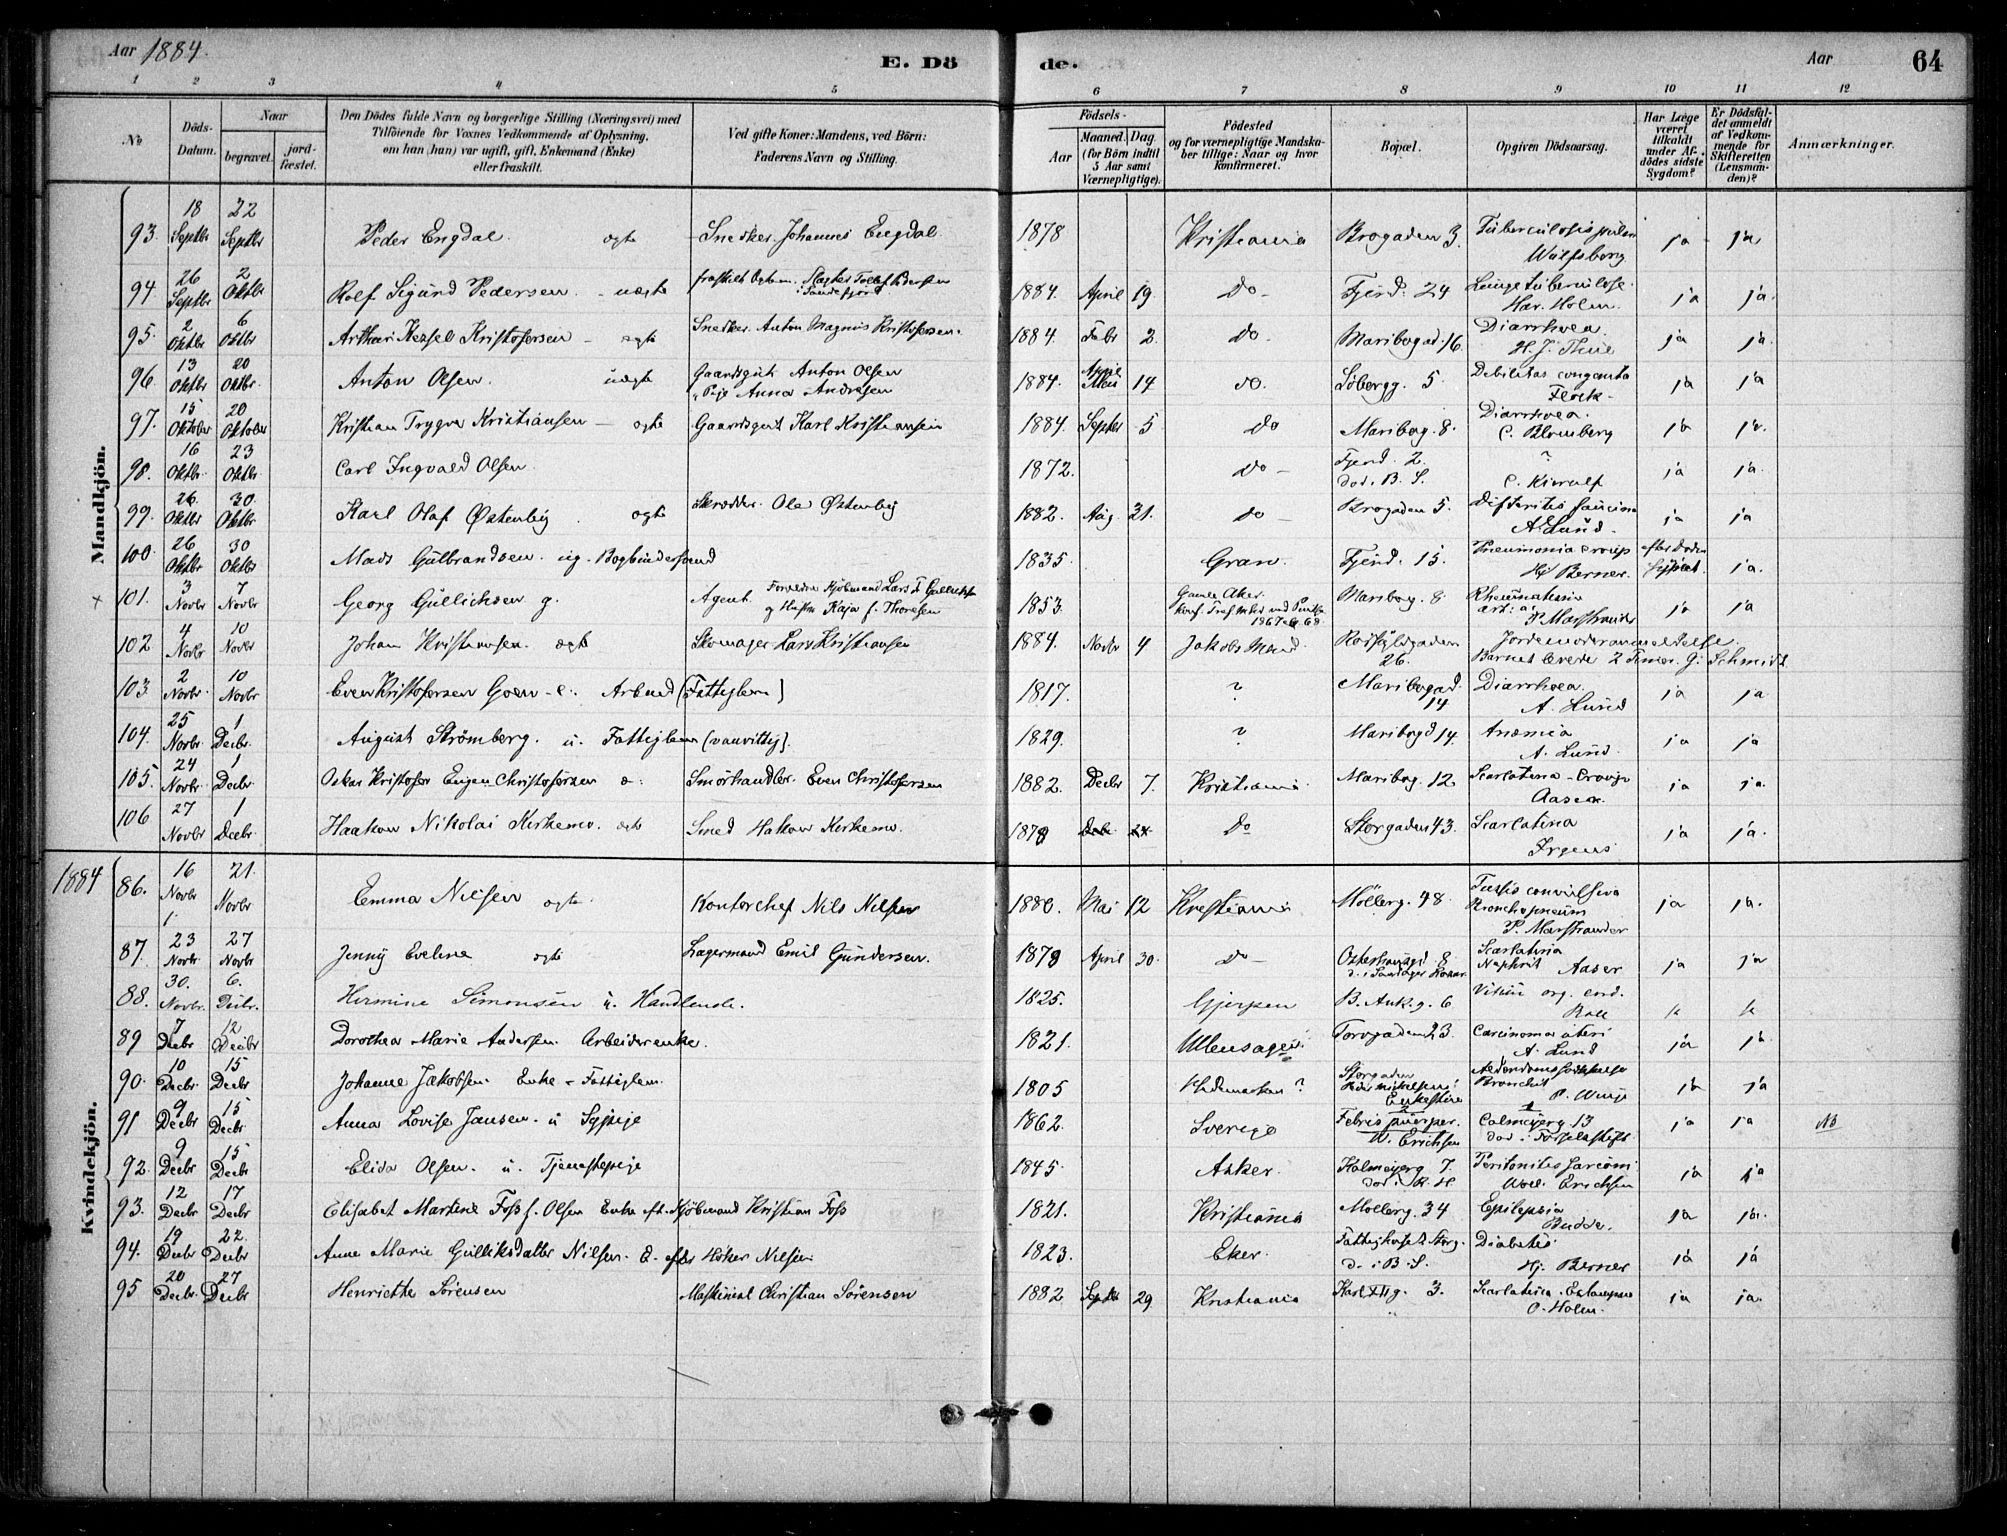 Aar 1884.
E. Dö
de.
Aar
64
1 2 3 4 5 6 7 8 9 10 11 12
No
Döds-Datum.
Naar
begravet.
jord-fæstet.
Den Dödes fulde Navn og borgerlige Stilling (Næringsvei) med
Tilföiende for Voxnes Vedkommende af Oplysning,
om han (hun) var ugift, gift, Enkemand (Enke)
eller fraskilt.
Ved gifte Koner: Mandens, ved Börn:
Faderens Navn og Stilling.
Födsels-
Aar
Maaned. Dag.
(for Börn indtil
5 Aar samt
Værnepligtige).
Födested
og for værnepligtige Mandska-
ber tillige: Naar og hvor
konfirmeret.
Bopæl.
Opgiven Dödsaarsag.
Har Læge
været
tilkaldt
under Af-
dödes sidste
Sygdom?
Er Dödsfal-
det anmeldt
af Vedkom-
mende for
Skifteretten
(Lensman-
den)?
Anmærkninger.
Mandkjön.
93. 18 Septbr 22 Septbr Peder Engdal. ægte Snedker Johannes Engdal. 1878 Kristiania Brogaden 3. Tuberculosis pulm Wulfsberg ja ja
94. 26 Septbr 2 Oktbr Rolf Sigurd Pedersen - uægte Slagter Pedersen i Sandefjord 1884. April 19. Do - Fjerd. 24 Lungetuberculose. Har. Holm. ja ja.
95. 2 Oktbr 6 Oktbr Kristofersen - ægte Snedker Anton Magnus Kristofersen. 1884. Febr 2. Do. Maribogad. 16. Diarrhoea. H. J. Thue ja ja.
96. 13 Oktbr 20 Oktbr. Anton Olsen. uægte Gaardsgut Anton Olsen Pige Anna Andresen 1884. April 14 do. Söbergg. 5. Debilitas congenita ja ja
97. 15 Oktober 20 Oktober Kristian Trygve Kristiansen - ægte Gaardsgut Karl Kristiansen 1884. Septbr 5. do Maribog. 8. Diarrhoea. C. Blomberg ja ja.
98. 16 Oktbr. 23 Oktbr. Carl Ingvald Olsen. 1872. Do - Fjerd. 2. död i B. S. ? C. Kierulf ja ja.
99. 26. Oktbr 30. Oktbr Karl Olaf Østenby. ægte Skrædder. Ole Østenby 1882. Aug 21. do - Brogaden 5. Difteritis faucium A. Lund. ja ja
100. 26 Oktbr 30 Oktbr Mads Gulbrandsen. ug. Bogbindersvend 1835. Gran. Fjerd. 15. Pneumonia croup Hj Berner. efter Döden ja.
x 101. 3 Novbr 7 Novbr Georg Gullichsen g. Agent. Kjöbmand Lars Gullichsen og Hustru Kaja f. Thoresen 1853. Gamle Aker. 1867 68. Maribog. 8 Rheumatismus P. Marstrander ja ja
102 4 Novbr 10 Novbr Johan Kristiansen. ægte Skomager Lars Kristiansen 1884. Novbr 4 Jakobs Men. 26. Jordemoderanmeldelse. Barnet levede 2 Timer. G. Schmidt
103. 2 Novbr. 10 Novbr. Even Kristofersen Goen - e. Arbmd (Fattiglem) 1817. ? Maribogad. 14 Diarrhoea. A. Lund ja ja
104. 25 Novbr. 1 Decbr. August Strömberg. u. Fattiglem (vanvittig). 1829. ? Maribogd 14. Anæmia A. Lund. ja ja
105. 24 Novbr. 1 Decbr. Oskar Kristofer Eugen Christofersen æ. Smörhandler. Even Christofersen 1882. Decbr 7. Kristiania Maribog. 12. Scarlatina - Croup Aaser. ja ja.
106 27 Novbr 1 Decbr. Haakon Nikolai Kirkemo. ægte Smed Hakon Kirkemo. 1878 Do Storgaden 43. Scarlatina Irgens ja ja.
1884
Kvindekjön.
86. 16 Novbr 21. Novbr Emma Nilsen ægte. Kontorchef Nils Nilsen 1880. Mai 12 Kristiania Möllerg. 48. Tussis convulsiva Bronchopneum P. Marstrander ja ja.
87. 23 Novbr. 27 Novbr Jenny Eveline ægte Lagermand Emil Gundersen. 1878 April 30. Do - 8 Scarlatina Nephrit Aaser ja ja
88. 30. Novbr. 6. Decbr. Hermine Simonsen u. Handlende. 1825. Gjerpen B. Ank. g. 6 Vitium org. cord.
89 7 Decbr 12 Decbr Dorothea Marie Andersen. Arbeiderenke. 1821. Ullensager. Torvgaden 23. Carcinoma uteri A. Lund ja ja
90. 10 Decbr. 15 Decbr Johanne Jakobsen. Enke - Fattiglem. 1805 Hedemarken? Storgaden Enkestiftelse Bronchit P. Winge ja ja
91 9 Decbr 15 Decbr Anna Lovise Jansen. u Sypige 1862. Sverige Febris puerper. W. Erichsen Calmeyerg 13 död i Födselsstift ja ja NB
92. 9 Decbr 15 Decbr Elida Olsen. u. Tjenestepige 1845. Asker. Kalmeyerg 7. död i R. H. Peritonitis Sarcom. Erichsen ja ja
93. 12 Decbr 17 Decbr Elisabet Martine Foss f. Olsen Enke eft. Kjöbmand Kristian Foss 1821. Kristiania Möllerg. 34 Epilepsia Budde. ja ja.
94. 19 Decbr 22. Decbr Anne Marie Gulliksdatter Nilsen. E. efter Höker Nilsen. 1823. Eker. Fattighuset Storg. d. i B. S. Diabetes Hj. Berner ja ja
95 20 Decbr. 27 Decbr Henriette Sörensen Maskinist Christian Sörensen 1882 Septbr 29 Kristiania Karl XIIg. 3. Scarlatina. O. Holm. ja ja.